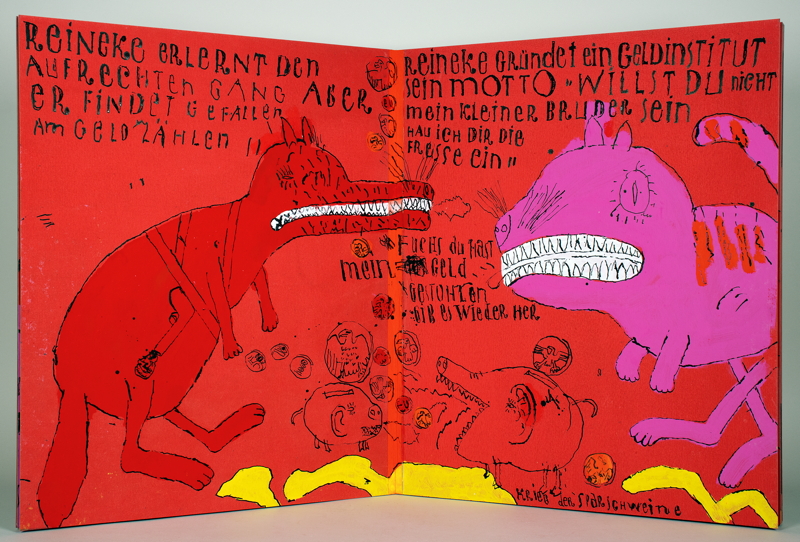 REINEKE ERLERNT DEN
AUFRECHTEN GANG ABER
ER FINDET GEFALLEN
AM GELDZÄHLEN !!
REINEKE GRÜNDET EIN GELDINSTITUT
SEIN MOTTO „WILLST DU NICHT
MEIN KLEINER BRUDER SEIN
HAU ICH DIR DIE
FRESSE EIN"
FUCHS DU HAST
MEIN GELD
GESTOHLEN
GIB ES WIEDER HER
KRIEG DER SPARSCHWEINE